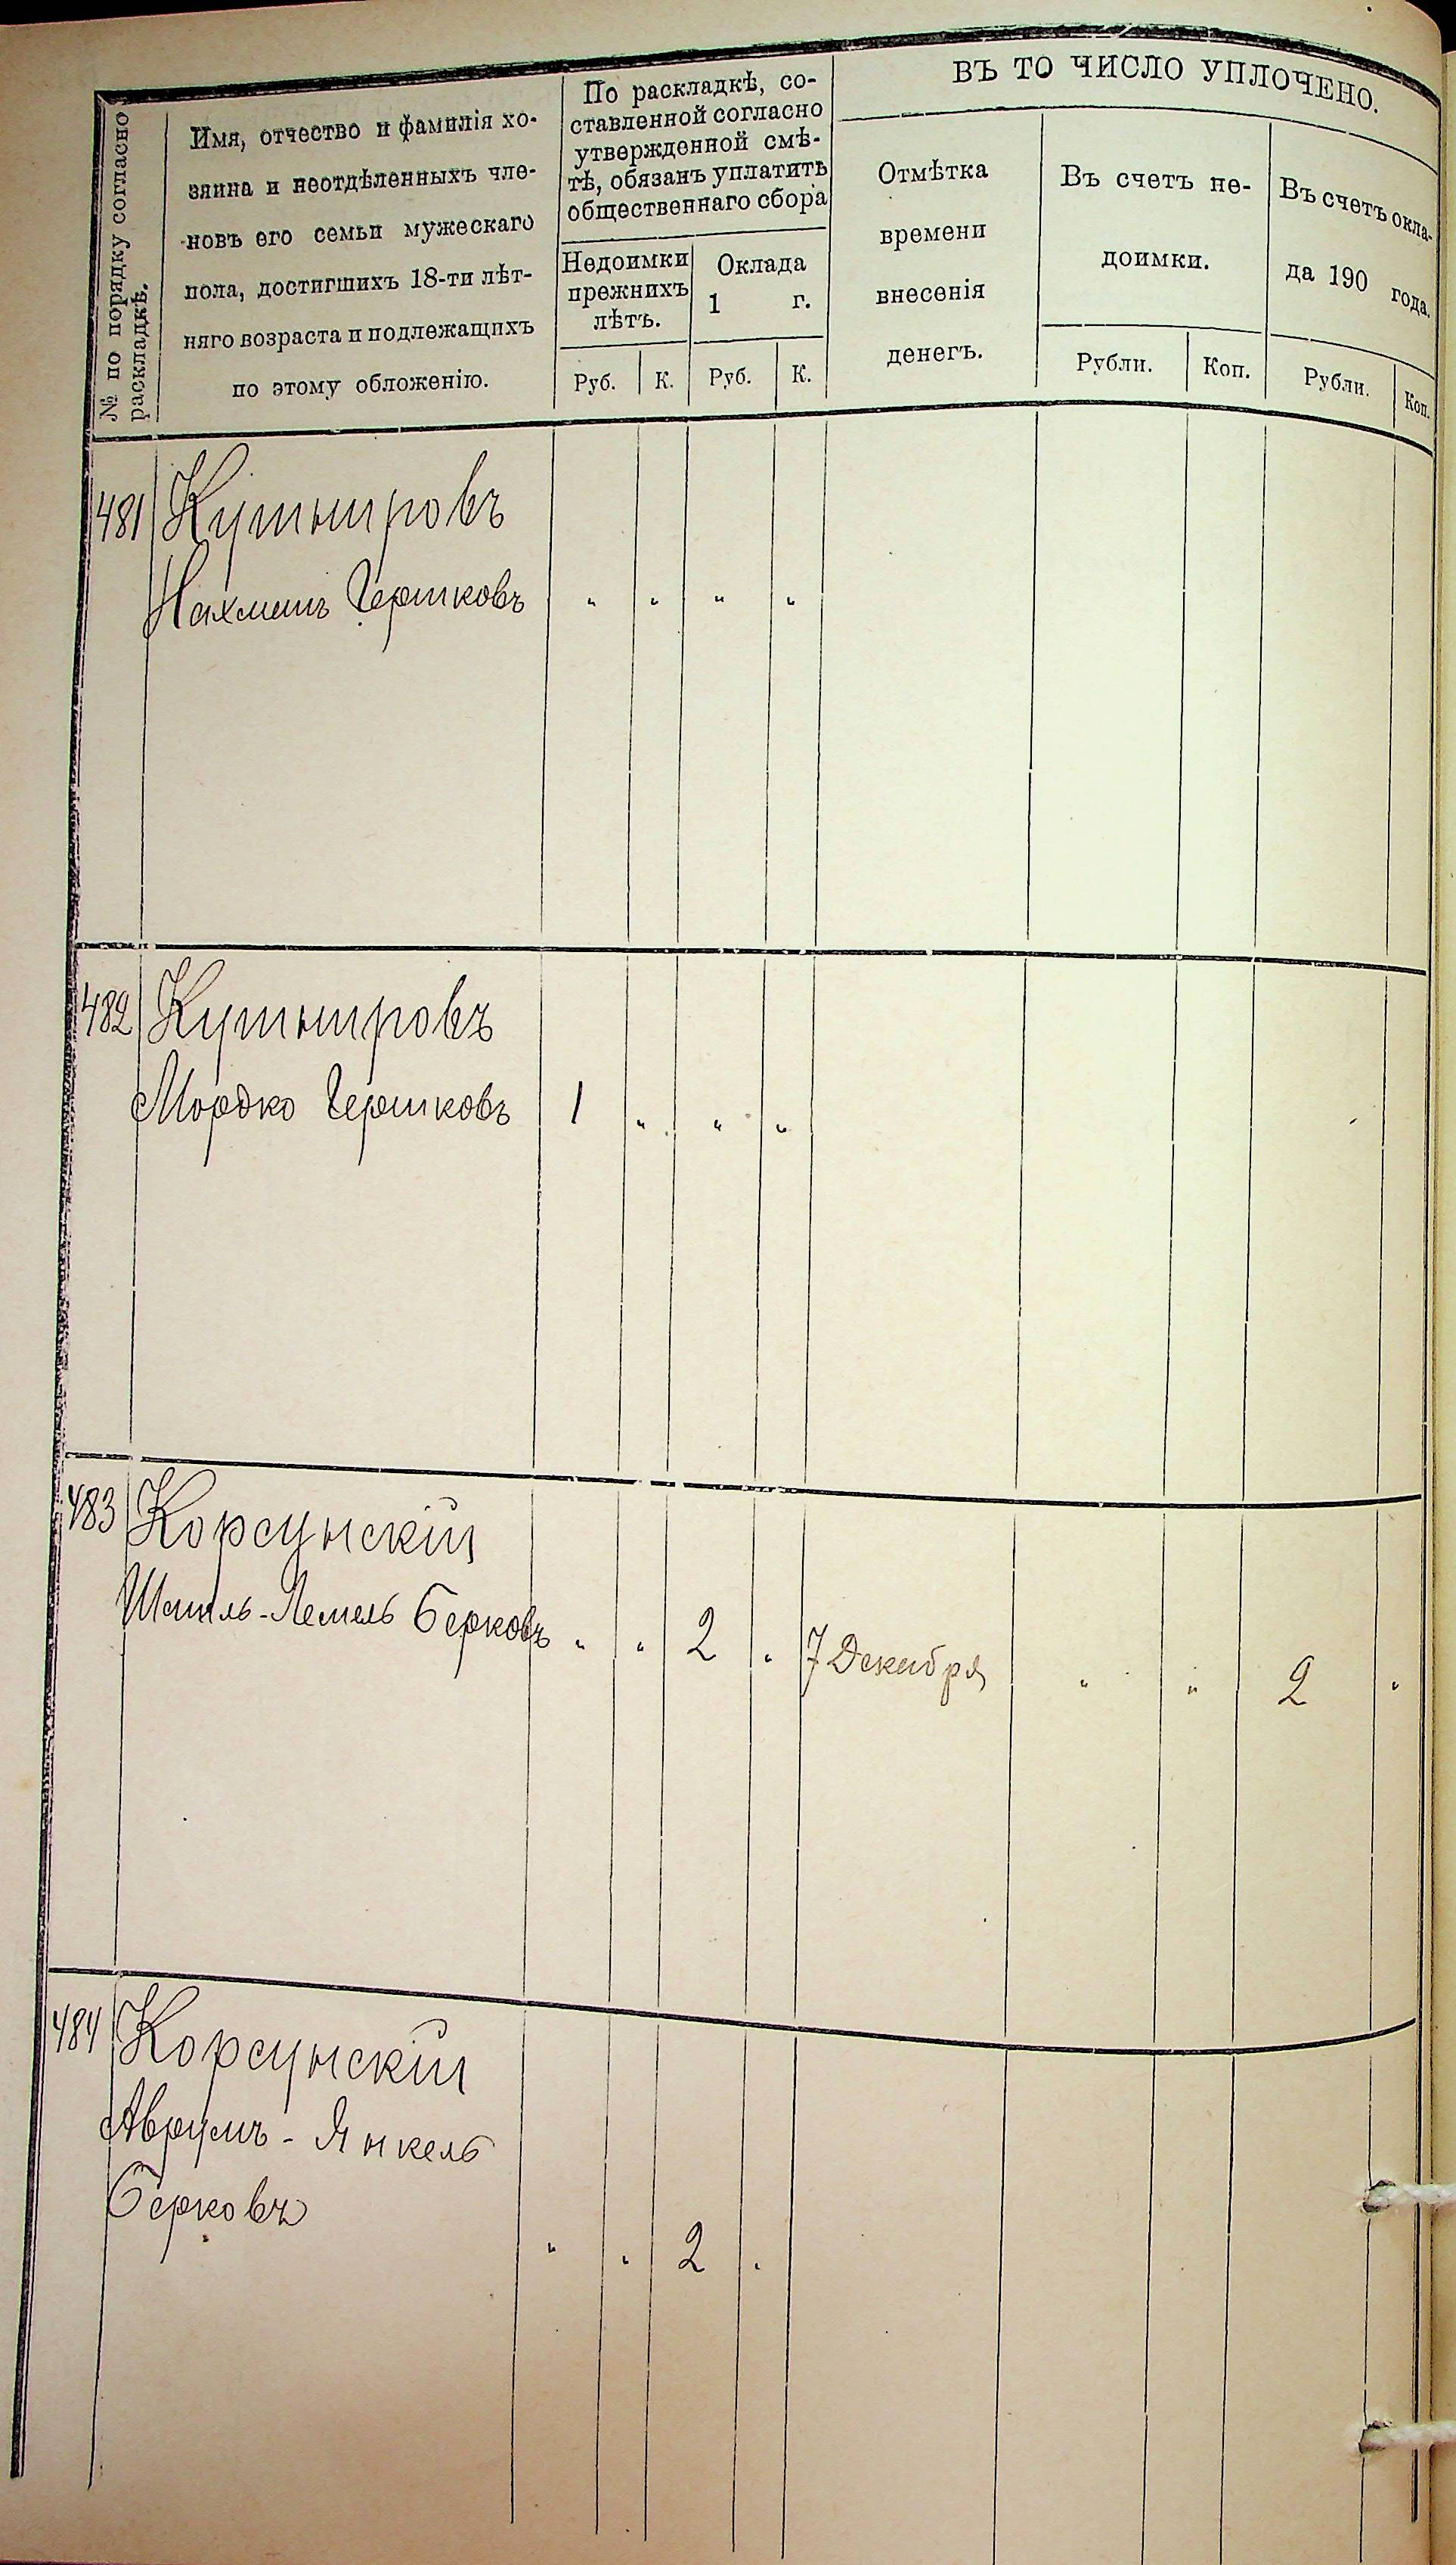 № по порядку согласно
раскладкѣ.
Имя, отчество и фамилія хо-
зяина и неотдѣленныхъ чле-
новъ его семьи мужескаго
пола, достигшихъ 18-ти лѣт-
няго возраста и подлежащихъ
по этому обложенію.
По раскладкѣ, со-
ставленной согласно
утвержденной смѣ-
тѣ, обязанъ уплатить
общественнаго сбора
Недоимки
прежнихъ
лѣтъ.
Руб. К.
Оклада
1 г.
Руб. К.
ВЪ ТО ЧИСЛО УПЛОЧЕНО.
Отмѣтка
времени
внесенія
денегъ.
Въ счетъ не-
доимки.
Рубли. Коп.
Въ счетъ окла-
да 190 года.
Рубли. Коп.
481 Кушнировъ
Нахманъ Гершковъ " " " "
482 Кушнировъ
Мордко Гершковъ 1 " " "
483 Корсунскій
Шмиль-Лемель Берковъ " " 2 " 7 Декабря " " 2 "
484 Корсунскій
Аврумъ - Янкель
Берковъ
" " 2 "